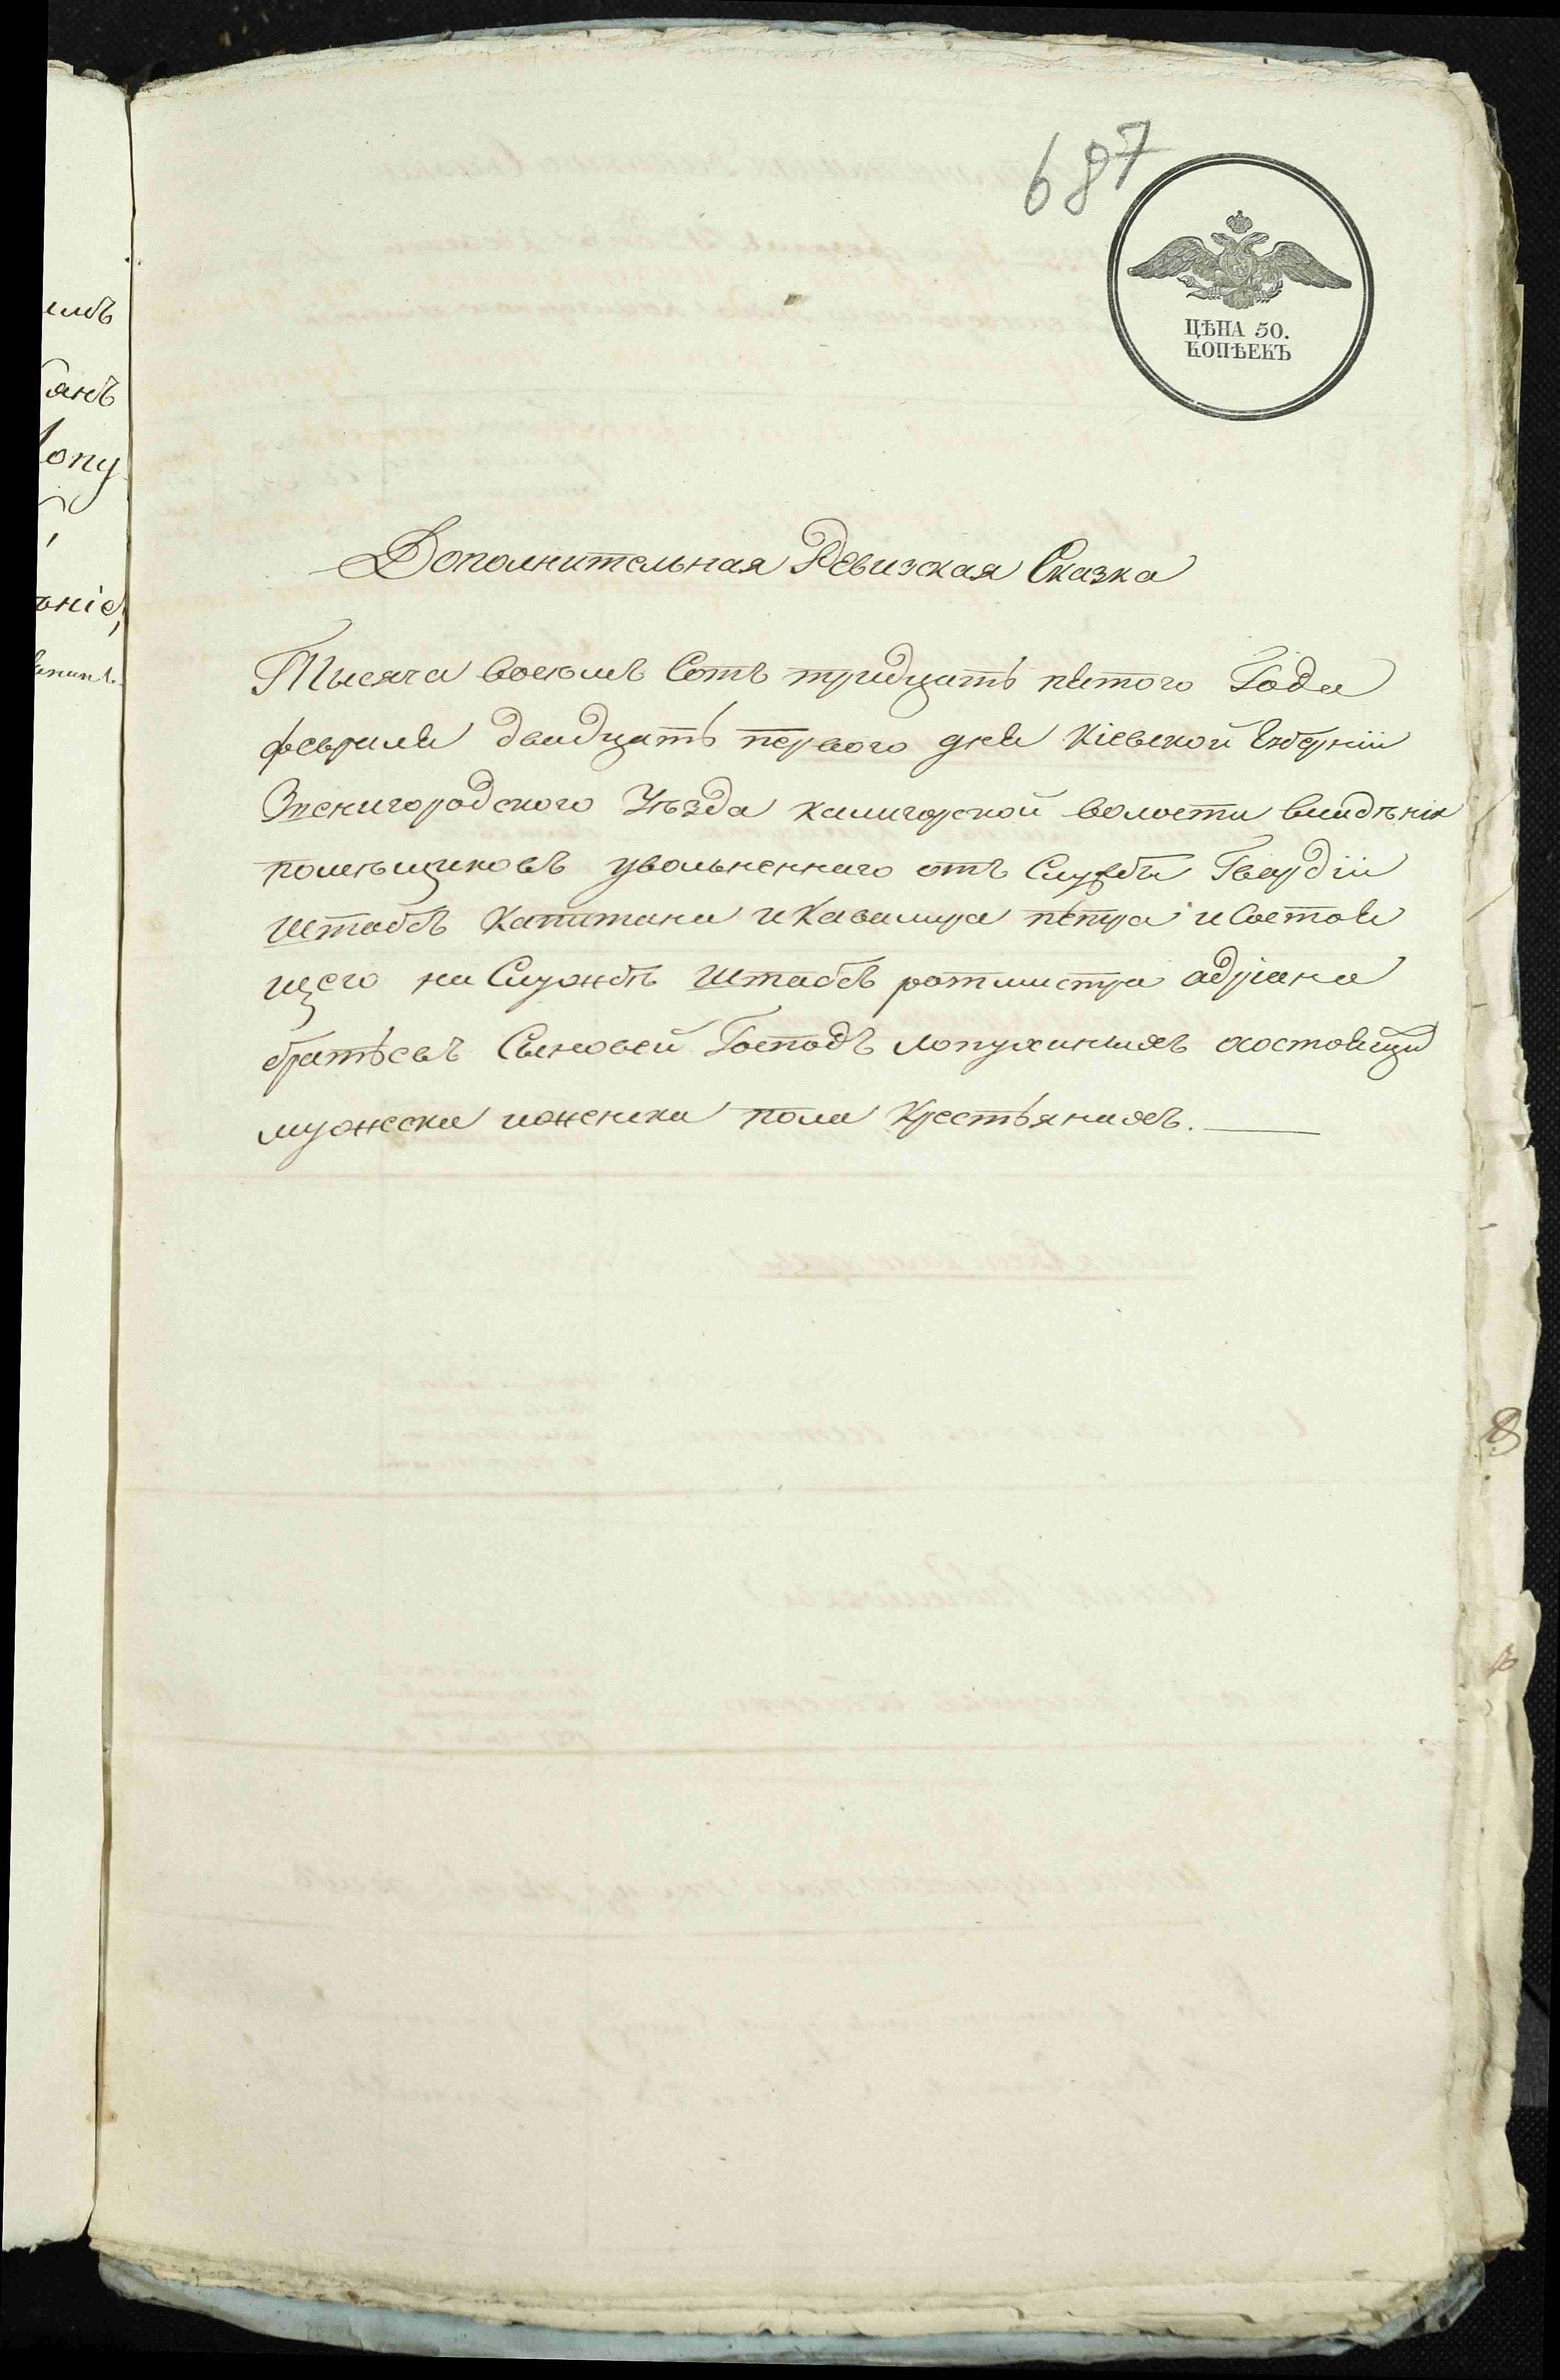 687
ЦѢНА 50.
КОПѢЕКЪ
Дополнительная Ревизская Сказка
Тысяча восемъ Сотъ тридцать пятого Года
февраля двадцать первого дня Кіевской Губерніи
Звенигородского Уѣзда калигорской волости владѣнія
помѣщиковъ увольненнаго отъ Службы Гвардіи
Штабсъ Капитана и Кавалира петра и Состоя
щего на Службѣ Штабсъ ротмистра адріана
братьевъ Сыновей Господъ лопухиныхъ осостоящи
мужеска иженска пола Крестьянахъ.